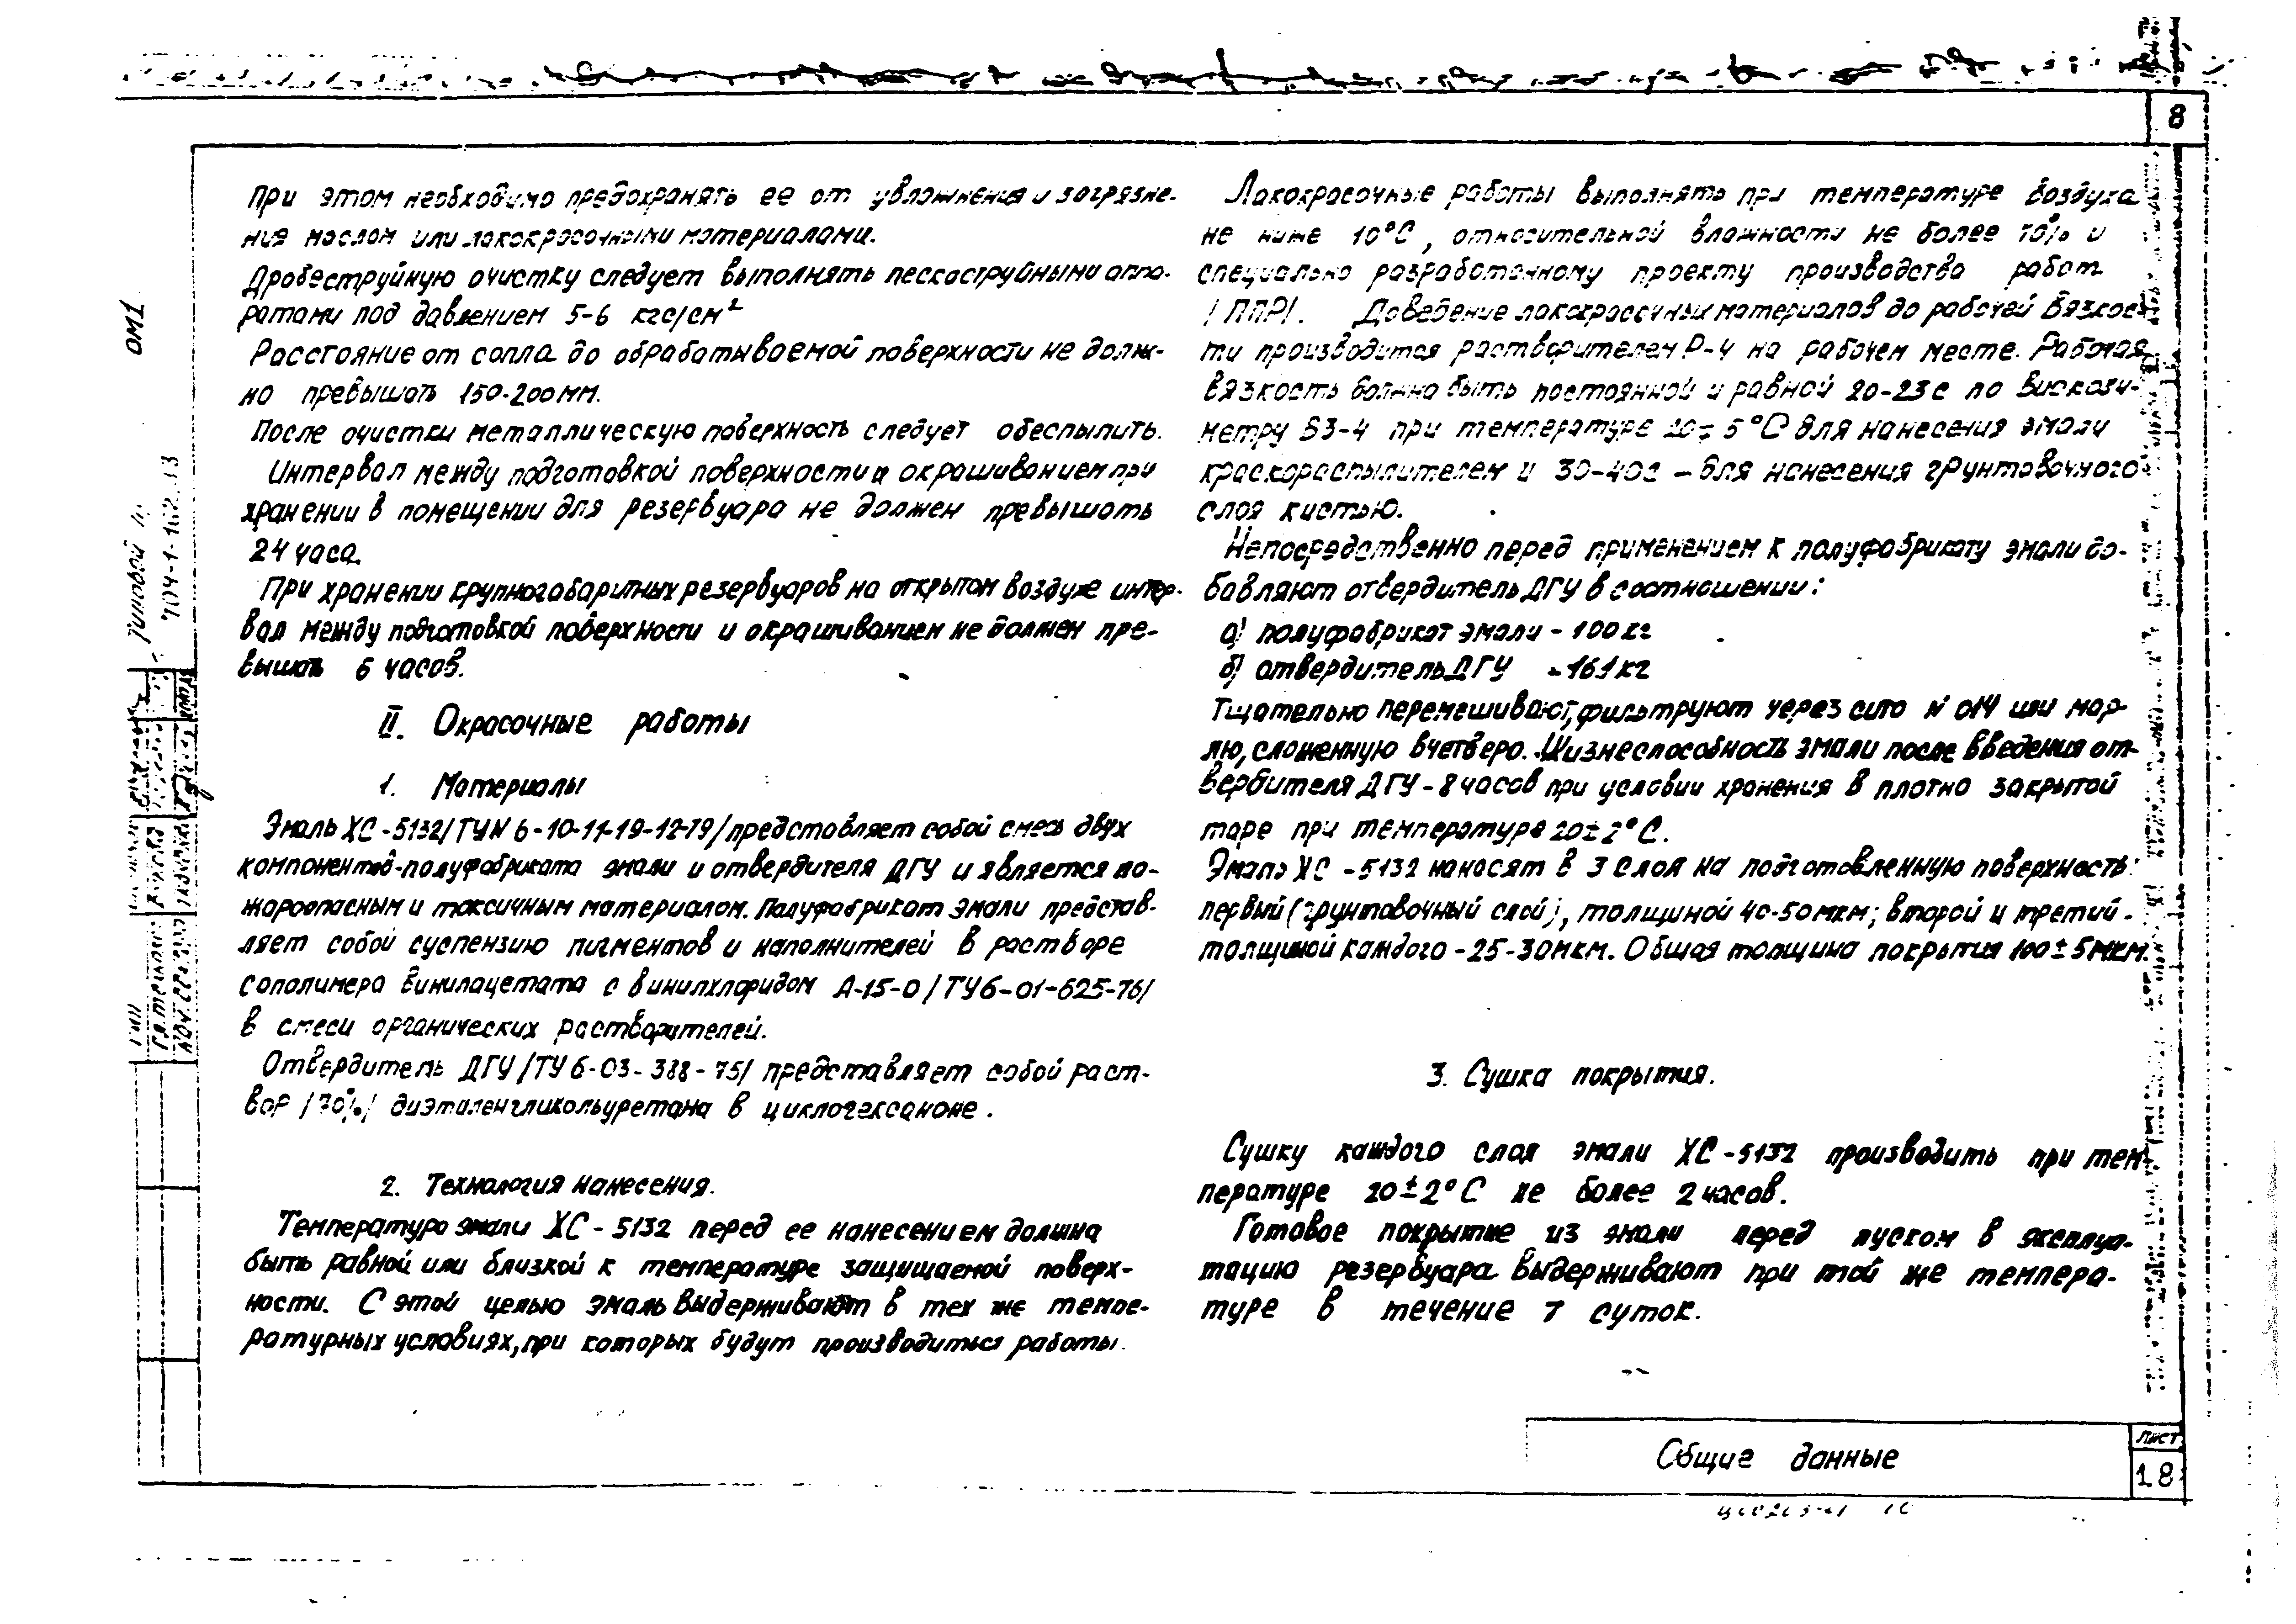 8
При этом необходимо предохранять ее от увлажнения и загрязне-
ния маслом или лакокрасочными материалами.
Дробеструйную очистку следует выполнять пескоструйными аппа-
ратами под давлением 5-6 кгс/см²
Расстояние от сопла до обрабатываемой поверхности не долж-
но превышать 150-200 мм.
После очистки металлическую поверхность следует обеспылить.
Интервал между подготовкой поверхности и окрашиванием при
хранении в помещении для резервуара не должен превышать
24 часа.
При хранении крупногабаритных резервуаров на открытом воздухе интер-
вал между подготовкой поверхности и окрашиванием не должен пре-
вышать 6 часов.
II. Окрасочные работы
1. Материалы
Эмаль ХС-5132/ТУN 6-10-11-19-12-79/представляет собой смесь двух
компонентов-полуфабриката эмали и отвердителя ДГУ и является по-
жароопасным и токсичным материалом. Полуфабрикат эмали представ-
ляет собой суспензию пигментов и наполнителей в растворе
сополимера винилацетата с винилхлоридом А-15-О/ТУ6-01-625-76/
в смеси органических растворителей.
Отвердитель ДГУ/ТУ 6-03-388-75/ представляет собой раст-
вор /70%/ диэтиленгликольуретана в циклогексаноне.
2. Технология нанесения.
Температура эмали ХС-5132 перед ее нанесением должна
быть равной или близкой к температуре защищаемой поверх-
ности. С этой целью эмаль выдерживают в тех же темпе-
ратурных условиях, при которых будут производиться работы.
Лакокрасочные работы выполнять при температуре воздуха
не ниже 10°С, относительной влажности не более 70% и
специально разработанному проекту производства работ
/ППР/. Доведение лакокрасочных материалов до рабочей вязкос-
ти производится растворителем Р-4 на рабочем месте. Рабочая
вязкость должна быть постоянной и равной 20-23с по вискози-
метру ВЗ-4 при температуре 20±5°С для нанесения эмали
краскораспылителем и 30-40с - для нанесения грунтовочного
слоя кистью.
Непосредственно перед применением к полуфабрикату эмали до-
бавляют отвердитель ДГУ в соотношении:
а) полуфабрикат эмали - 100 кг
б) отвердитель ДГУ - 16,1 кг
Тщательно перемешивают, фильтруют через сито N 014 или мар-
лю, сложенную вчетверо. Жизнеспособность эмали после введения от-
вердителя ДГУ - 8 часов при условии хранения в плотно закрытой
таре при температуре 20±2°С.
Эмаль ХС-5132 наносят в 3 слоя на подготовленную поверхность:
первый (грунтовочный слой), толщиной 40-50мкм; второй и третий -
толщиной каждого -25-30мкм. Общая толщина покрытия 100±5мкм.
3. Сушка покрытия.
Сушку каждого слоя эмали ХС-5132 производить при тем-
пературе 20±2°С не более 2 часов.
Готовое покрытие из эмали перед пуском в эксплуа-
тацию резервуара выдерживают при той же темпера-
туре в течение 7 суток.
Общие данные
Лист
1.8
ОМ1
Типовой
704-1-162. 13